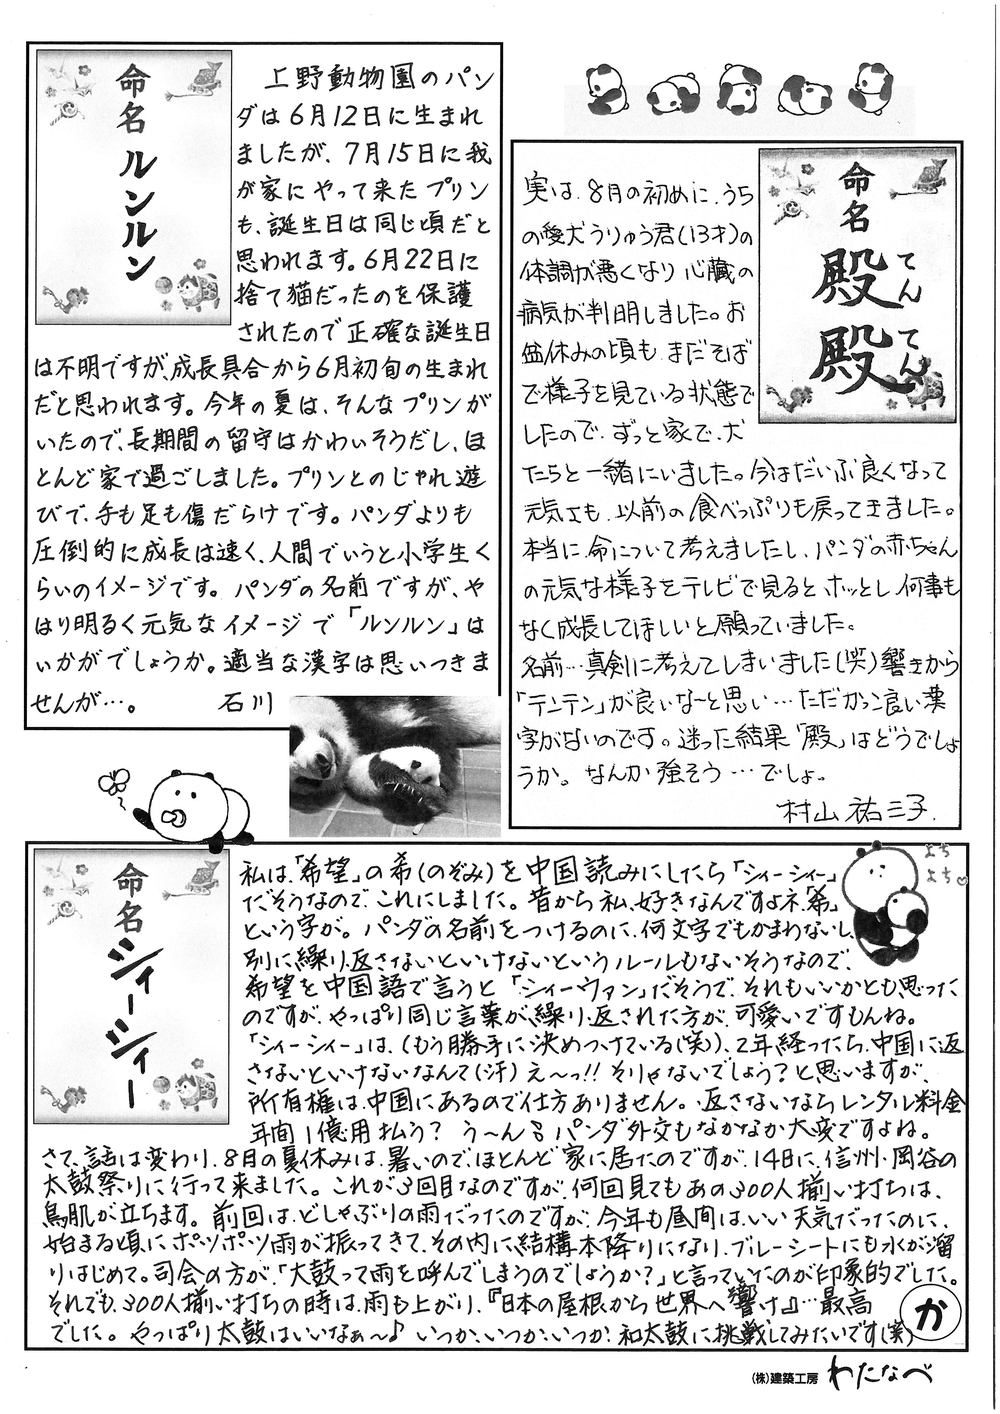 命名
ルンルン
上野動物園のパン
ダは6月12日に生まれ
ましたが、7月15日に我
が家にやって来たプリン
も、誕生日は同じ頃だと
思われます。6月22日に
捨て猫だったのを保護
されたので正確な誕生日
は不明ですが、成長具合から6月初旬の生まれ
だと思われます。今年の夏は、そんなプリンが
いたので、長期間の留守はかわいそうだし、ほ
とんど家で過ごしました。プリンとのじゃれ遊
びで、手も足も傷だらけです。パンダよりも
圧倒的に成長は速く、人間でいうと小学生く
らいのイメージです。パンダの名前ですが、や
はり明るく元気なイメージで「ルンルン」は
いかがでしょうか。適当な漢字は思いつきま
せんが…。 石川
命名
殿殿
てんてん
実は、8月の初めに、うち
の愛犬うりゅう君(13才)の
体調が悪くなり心臓の
病気が判明しました。お
盆休みの頃も、まだそば
で様子を見ている状態で
したので、ずっと家で、犬
たちと一緒にいました。今はだいぶ良くなって
元気さも、以前の食べっぷりも戻ってきました。
本当に命について考えましたし、パンダの赤ちゃん
の元気な様子をテレビで見るとホッとし、何事も
なく成長してほしいと願っていました。
名前…真剣に考えてしまいました(笑)響きから
「テンテン」が良いな〜と思い…ただかっこ良い漢
字がないのです。迷った結果「殿」はどうでしょ
うか。なんか強そう…でしょ。
村山祐三子
命名
シィーシィー
よち
よち♡
私は「希望」の希(のぞみ)を中国読みにしたら「シィーシィー」
だそうなので、これにしました。昔から私、好きなんですよネ、「希」
という字が。パンダの名前をつけるのに、何文字でもかまわないし、
別に繰り返さないといけないというルールもないそうなので、
希望を中国語で言うと「シィーヴァン」だそうで、それもいいかとも思った
のですが、やっぱり同じ言葉が繰り返された方が、可愛いですもんね。
「シィーシィー」は、(もう勝手に決めつけている(笑))、2年経ったら、中国に返
さないといけないなんて(汗)え〜っ!!そりゃないでしょう?と思いますが、
所有権は、中国にあるので仕方ありません。返さないならレンタル料金
年間1億円払う? う〜ん。パンダ外交もなかなか大変ですよね。
さて、話は変わり、8月の夏休みは、暑いので、ほとんど家に居たのですが、14日に、信州・岡谷の
太鼓祭りに行って来ました。これが3回目なのですが、何回見てもあの300人揃い打ちは、
鳥肌が立ちます。前回は、どしゃぶりの雨だったのですが、今年も昼間は、いい天気だったのに、
始まる頃にポツポツ雨が振ってきて、その内に結構本降りになり、ブルーシートにも水が溜
りはじめて。司会の方が、「太鼓って雨を呼んでしまうのでしょうか?」と言っていたのが印象的でした。
それでも、300人揃い打ちの時は、雨も上がり、『日本の屋根から世界へ響け』…最高
でした。やっぱり太鼓はいいなぁ〜♪ いつか、いつか、いつか、和太鼓に挑戦してみたいです(笑)
か
(株)建築工房 わたなべ